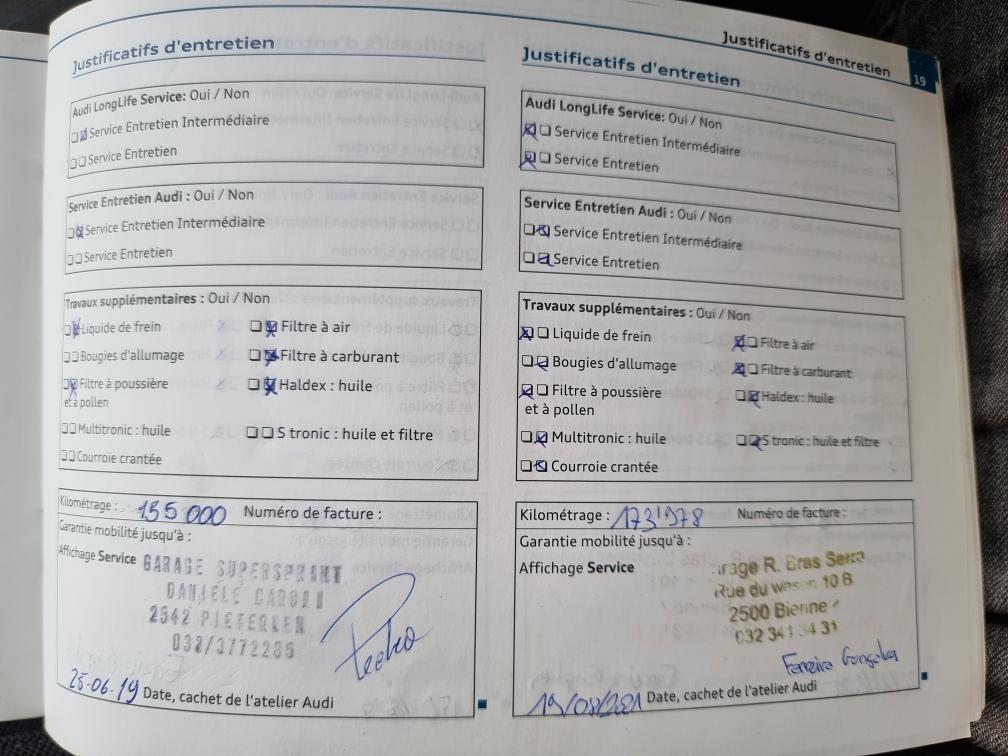 Justificatifs d'entretien
19
Justificatifs d'entretien
Audi LongLife Service: Oui / Non
Service Entretien Intermédiaire
Service Entretien
Service Entretien Audi : Oui / Non
Service Entretien Intermédiaire
Service Entretien
Travaux supplémentaires : Oui / Non
Liquide de frein
Filtre à air
Bougies d'allumage
Filtre à carburant
Filtre à poussière
et à pollen
Haldex : huile
Multitronic : huile
S tronic : huile et filtre
Courroie crantée
Kilométrage : 155 000 Numéro de facture :
Garantie mobilité jusqu'à :
Affichage Service
GARAGE SUPERSPRINT
2542 PIETERLEN
032/3772285
25.06.19 Date, cachet de l'atelier Audi
Justificatifs d'entretien
Audi LongLife Service: Oui / Non
Service Entretien Intermédiaire
Service Entretien
Service Entretien Audi : Oui / Non
Service Entretien Intermédiaire
Service Entretien
Travaux supplémentaires : Oui / Non
Liquide de frein
Filtre à air
Bougies d'allumage
Filtre à carburant
Filtre à poussière
et à pollen
Haldex : huile
Multitronic : huile
S tronic : huile et filtre
Courroie crantée
Kilométrage : 173'978 Numéro de facture :
Garantie mobilité jusqu'à :
Affichage Service
R. Bras Serra
Rue du wasen 10 B
2500 Bienne
032 341 34 31
Ferreira Gonçalva
Date, cachet de l'atelier Audi